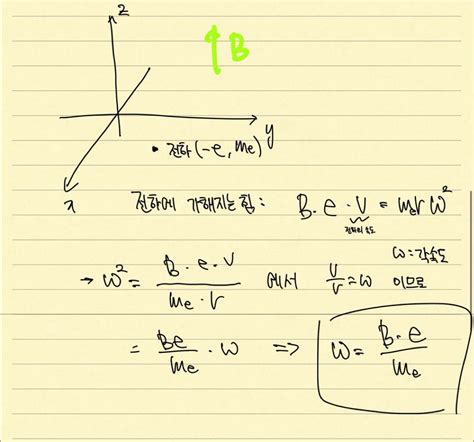 z
B
y
• 전하 (-e, me)
x
전하에 가해지는 힘 : B · e · v = me r ω²
전하의 속도
ω = 각속도
→ ω² = B · e · v / me · r 에서 v/r = ω 이므로
= Be / me · ω ⇒ ω = B · e / me